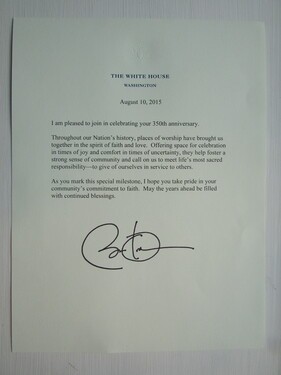 THE WHITE HOUSE
WASHINGTON
August 10, 2015
I am pleased to join in celebrating your 350th anniversary.
Throughout our Nation's history, places of worship have brought us
together in the spirit of faith and love.  Offering space for celebration
in times of joy and comfort in times of uncertainty, they help foster a
strong sense of community and call on us to meet life's most sacred
responsibility—to give of ourselves in service to others.
As you mark this special milestone, I hope you take pride in your
community's commitment to faith.  May the years ahead be filled
with continued blessings.